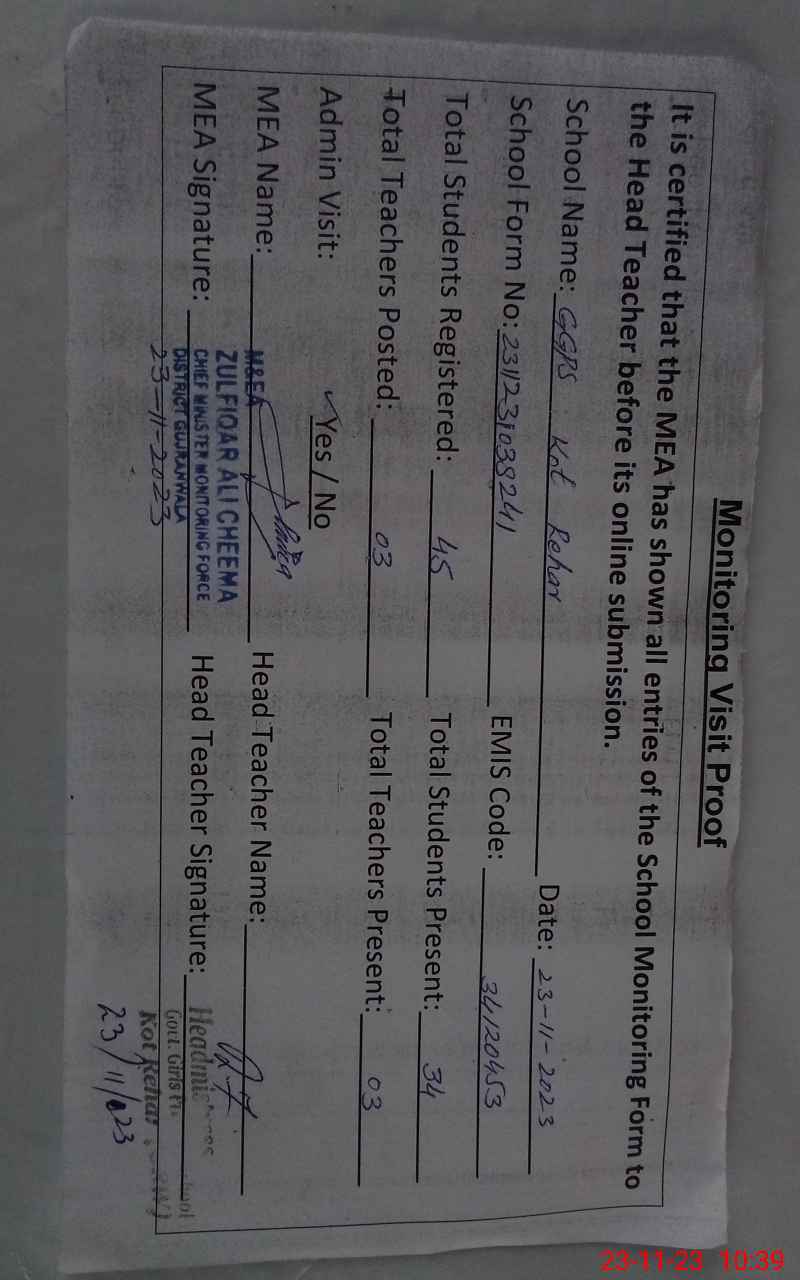 Monitoring Visit Proof
It is certified that the MEA has shown all entries of the School Monitoring Form to
the Head Teacher before its online submission.
School Name: GGPS Kot Rehar Date: 23-11-2023
School Form No: 2311231038241 EMIS Code: 34120453
Total Students Registered: 45 Total Students Present: 34
Total Teachers Posted: 03 Total Teachers Present: 03
Admin Visit: ✓Yes / No
MEA Name: Head Teacher Name:
M&EA
ZULFIQAR ALI CHEEMA
MEA Signature: Head Teacher Signature:
CHIEF MINISTER MONITORING FORCE
DISTRICT GUJRANWALA
23-11-2023
Govt. Girls
Kot Rehar
23/11/023
23-11-23 10:39